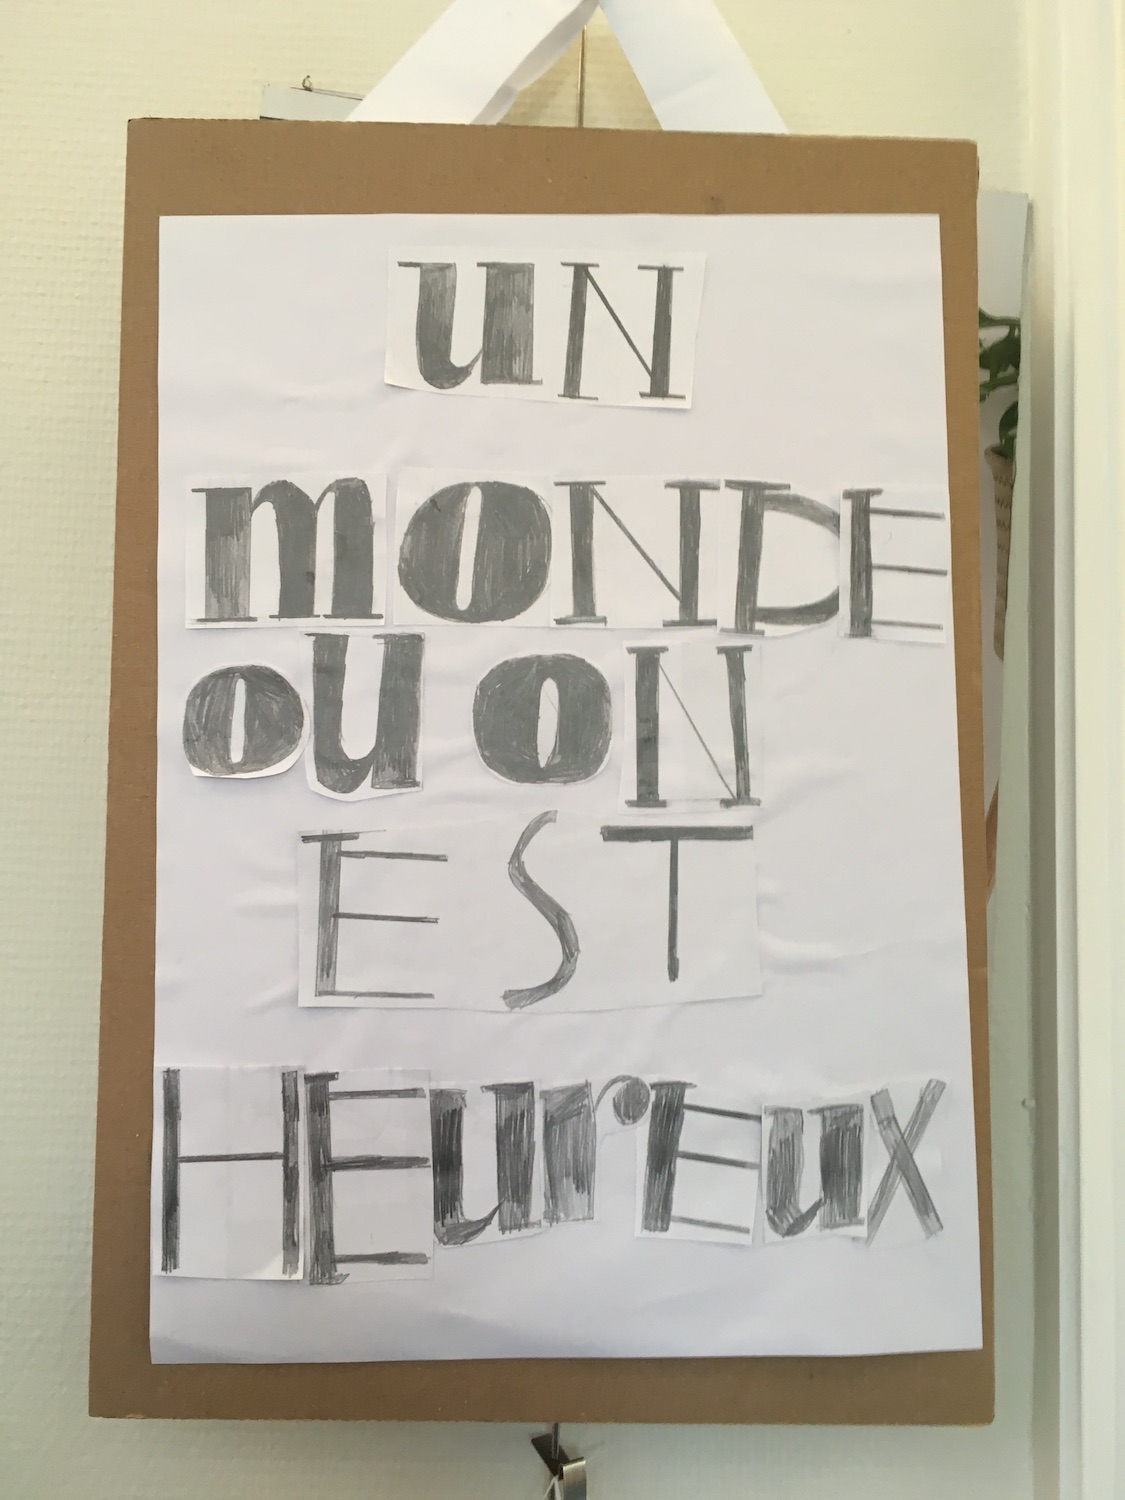 UN
MONDE
OU ON
EST
HEUrEUX